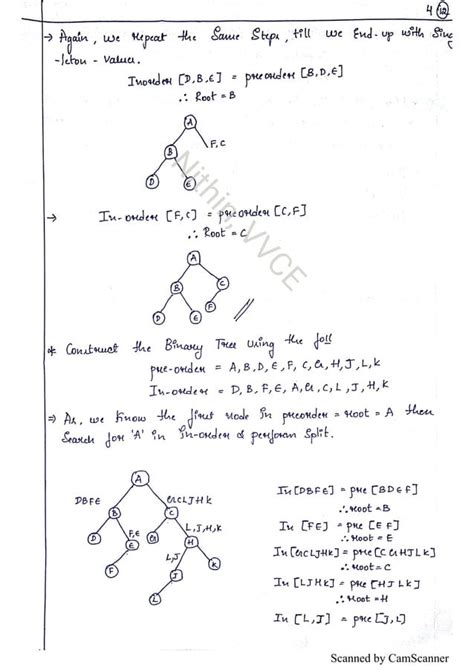 4 12
→ Again, we repeat the Same Steps, till we End-up with Sing
-leton - Values.
Inorder [D,B,E] = preorder [B,D,E]
∴ Root = B
A
F,C
B
D E
→ In-order [F,C] = preorder [C,F]
∴ Root = C
A
B C
F
D E
Nithin, VVCE
* Construct the Binary Tree using the foll
pre-order = A,B,D,E,F,C,G,H,J,L,K
In-order = D,B,F,E,A,G,C,L,J,H,K
⇒ As, we know the first node in preorder = Root = A then
Search for 'A' in In-order & perform Split.
A
DBFE GCLJHK
B C
F,E L,J,H,K
D E G H
L,J
F J K
L
In [DBFE] = pre [BDEF]
∴ Root = B
In [FE] = pre [EF]
∴ Root = E
In [GCLJHK] = pre [CGHJLK]
∴ Root = C
In [LJHK] = pre [HJLK]
∴ Root = H
In [L,J] = pre [J,L]
Scanned by CamScanner